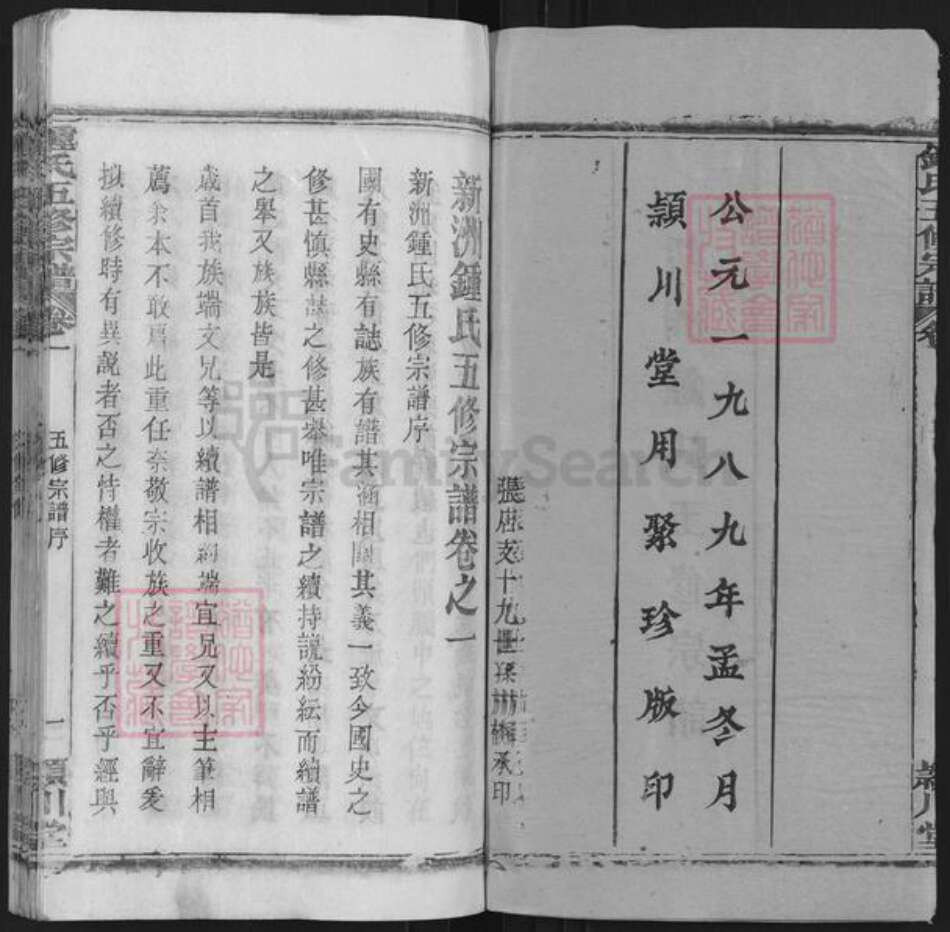 公元一九八九年孟冬月
頴川堂用聚珍版印
張店支十九世孫 承印
新洲鍾氏五修宗譜卷之一
新洲鍾氏五修宗譜序
國有史縣有誌族有譜其涵相同其義一致今國史之
修甚慎縣誌之修甚舉唯宗譜之續持說紛紜而續譜
之舉又族族皆是
歲首我族端文兄等以續譜相約端宜兄又以主筆相
薦余本不敢膺此重任奈敬宗收族之重又不宜辭爰
擬續修時有異說者否之恃權者難之續乎否乎經與
鍾氏五修宗譜
卷一
五修宗譜序
一
頴川堂
FamilySearch